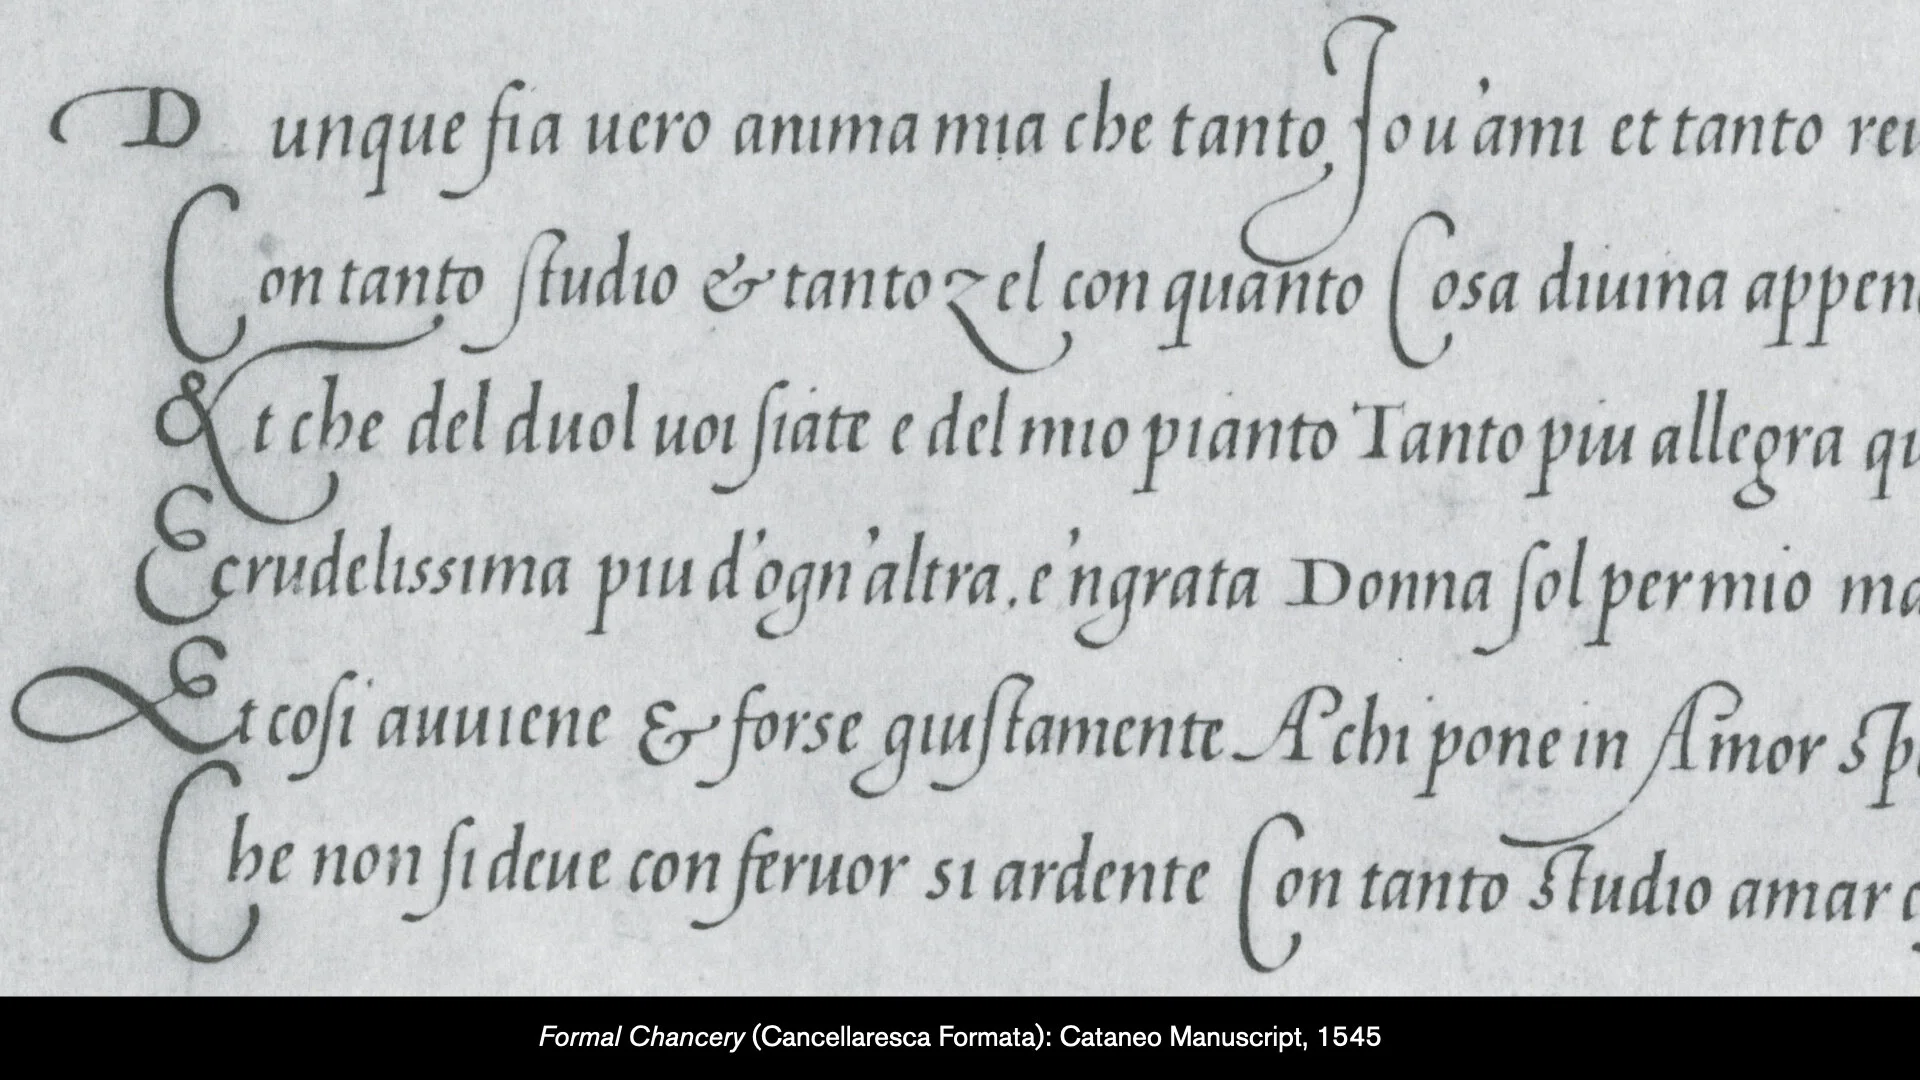 Dunque ſia uero anima mia che tanto, Jo u'ami et tanto reu
Con tanto ſtudio & tanto zel con quanto Cosa diuina appen
Et che del duol uoi ſiate e del mio pianto Tanto piu allegra qu
E crudelissima piu d'ogn'altra. e'ngrata Donna ſol per mio ma
Et coſi auuiene & forse giuſtamente A chi pone in Amor sp
Che non ſi deue con feruor si ardente Con tanto studio amar
Formal Chancery (Cancellaresca Formata): Cataneo Manuscript, 1545